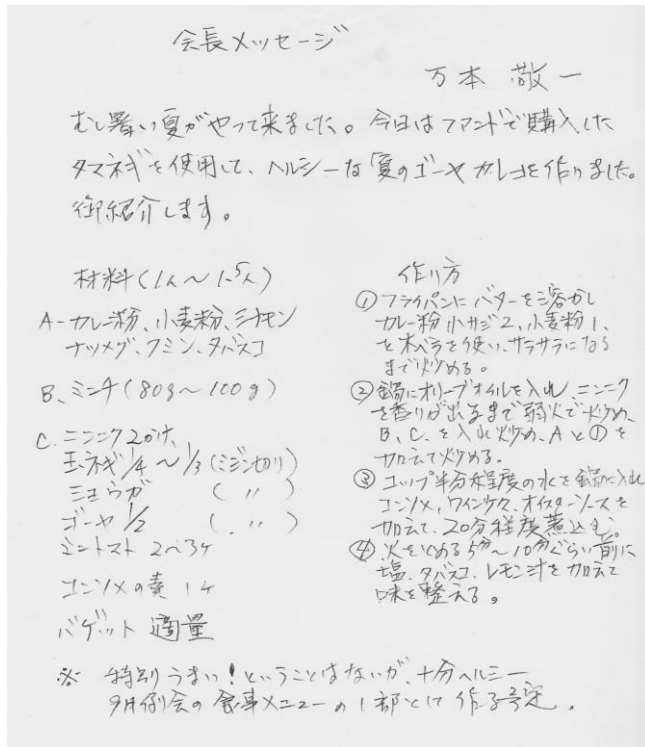 会長メッセージ
万本 敬一
むし暑い夏がやって来ました。今日はファンドで購入した
タマネギを使用して、ヘルシーな「夏のゴーヤカレー」を作りました。
御紹介します。
材料(1人〜1.5人)
A-カレー粉、小麦粉、シナモン
ナツメグ、クミン、タバスコ
B、ミンチ(80g〜100g)
C、ニンニク2かけ、
玉ネギ1/4〜1/3(ミジン切り)
ミョウガ (〃)
ゴーヤ1/2 (〃)
ミントマト 2〜3ケ
コンソメの素 1ケ
バゲット 適量
作り方
① フライパンにバターを溶かし
カレー粉小サジ2、小麦粉1、
を木ベラを使い、サラサラになる
まで炒める。
② 鍋にオリーブオイルを入れ、ニンニク
を香りが出るまで弱火で炒め、
B、C、を入れ炒め、Aと①を
加えて炒める。
③ コップ半分程度の水を鍋に入れ
コンソメ、ワイン少々、オイスターソースを
加えて、20分程度煮込む。
④ 火をとめる5分〜10分ぐらい前に
塩、タバスコ、レモン汁を加えて
味を整える。
※ 特別うまい!ということはないが、十分ヘルシー
9月例会の食事メニューの1部として作る予定.